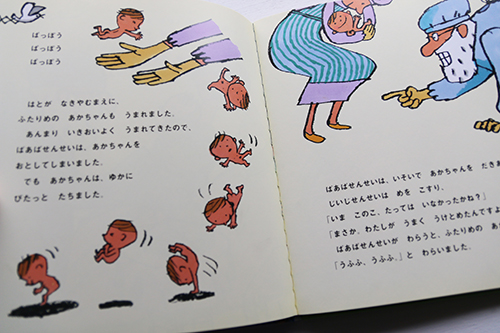 ぱっぽう
ぱっぽう
ぱっぽう
はとが なきやむまえに、
ふたりめの あかちゃんも うまれました。
あんまり いきおいよく うまれてきたので、
ばあばせんせいは、あかちゃんを
おとしてしまいました。
でも あかちゃんは、ゆかに
ぴたっと たちました。
ばあばせんせいは、いそいで あかちゃんを だきあ
じいじせんせいは めを こすり、
「いま このこ、たっては いなかったかね？」
「まさか、わたしが うまく うけとめたんですよ
ばあばせんせいが わらうと、ふたりめの あ
「うふふ、うふふ。」と わらいました。